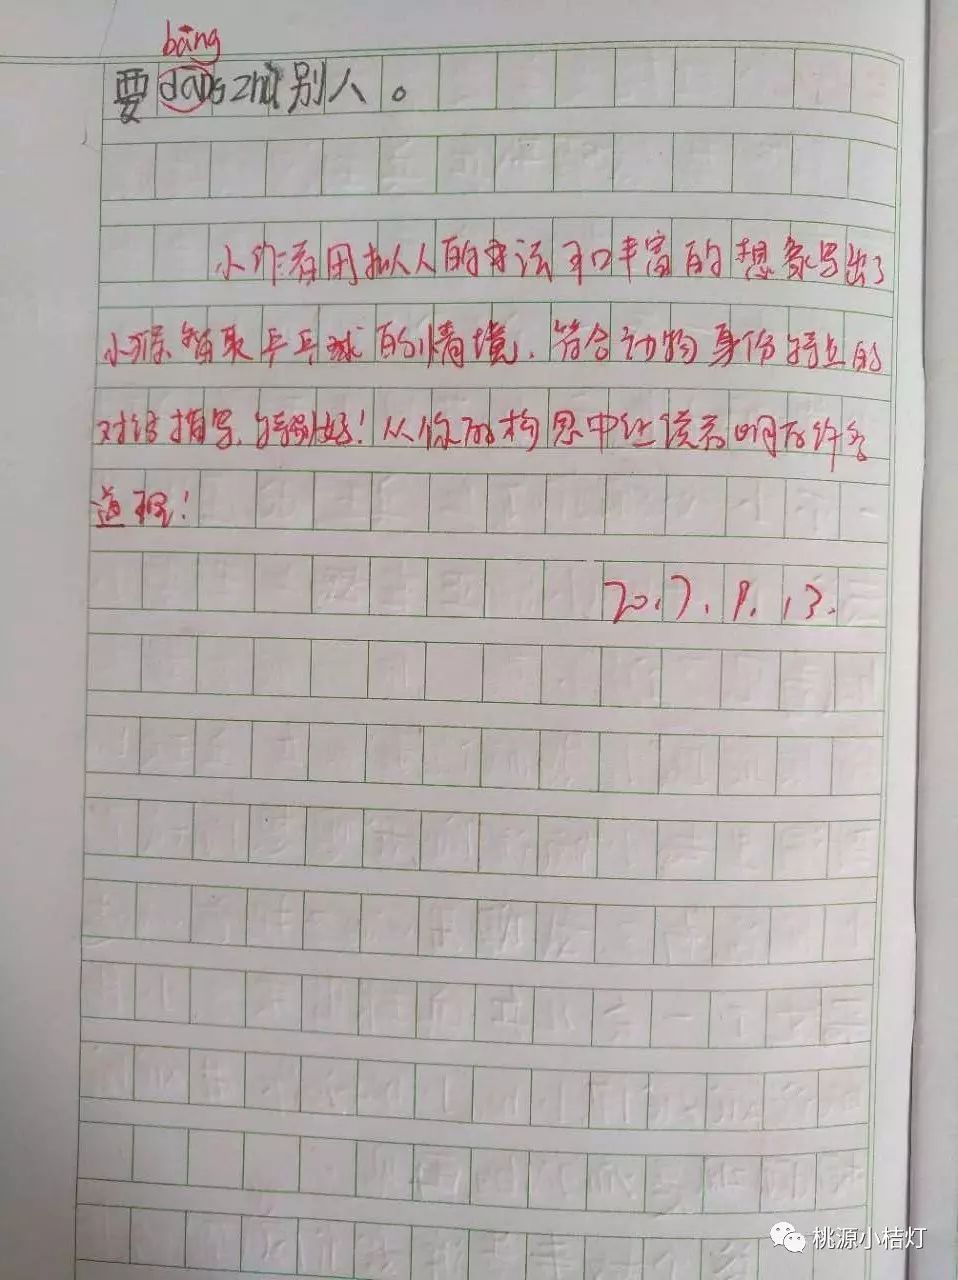 bāng
要dang zhù别人。
小作者用拟人的方法和丰富的想象写出了
小猴 取乒乓球的情境,符合动物身份特点的
对话描写,特别好!从你的构思中让读者明白许多
道理!
桃源小桔灯